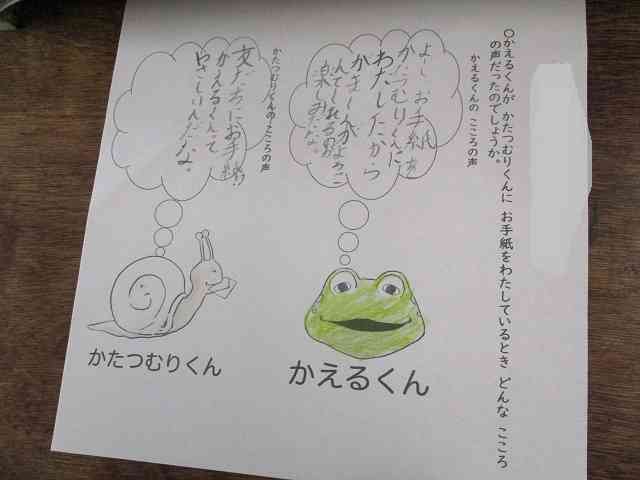 〇かえるくんが かたつむりくんに お手紙をわたしているとき どんな こころ
の声だったのでしょうか。
かえるくんの こころの声
よし、お手紙を
かたつむりくんに
わたしたから
がまくんがよろこ
んでくれる
楽しみだな。
かたつむりくんの こころの声
友だちにお手紙!
かえるくんて
やさしいんだな。
かえるくん
かたつむりくん